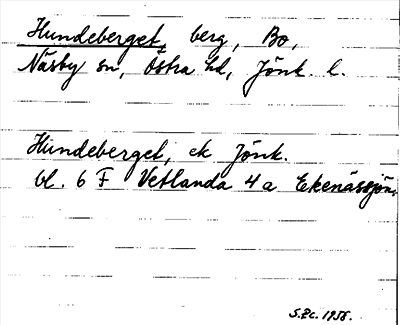 Hundeberget, berg, Bo,
Näsby sn, Östra hd, Jönk. l.
Hundeberget, ek Jönk.
bl. 6 F Vetlanda 4 a Ekenässjön,
1956.